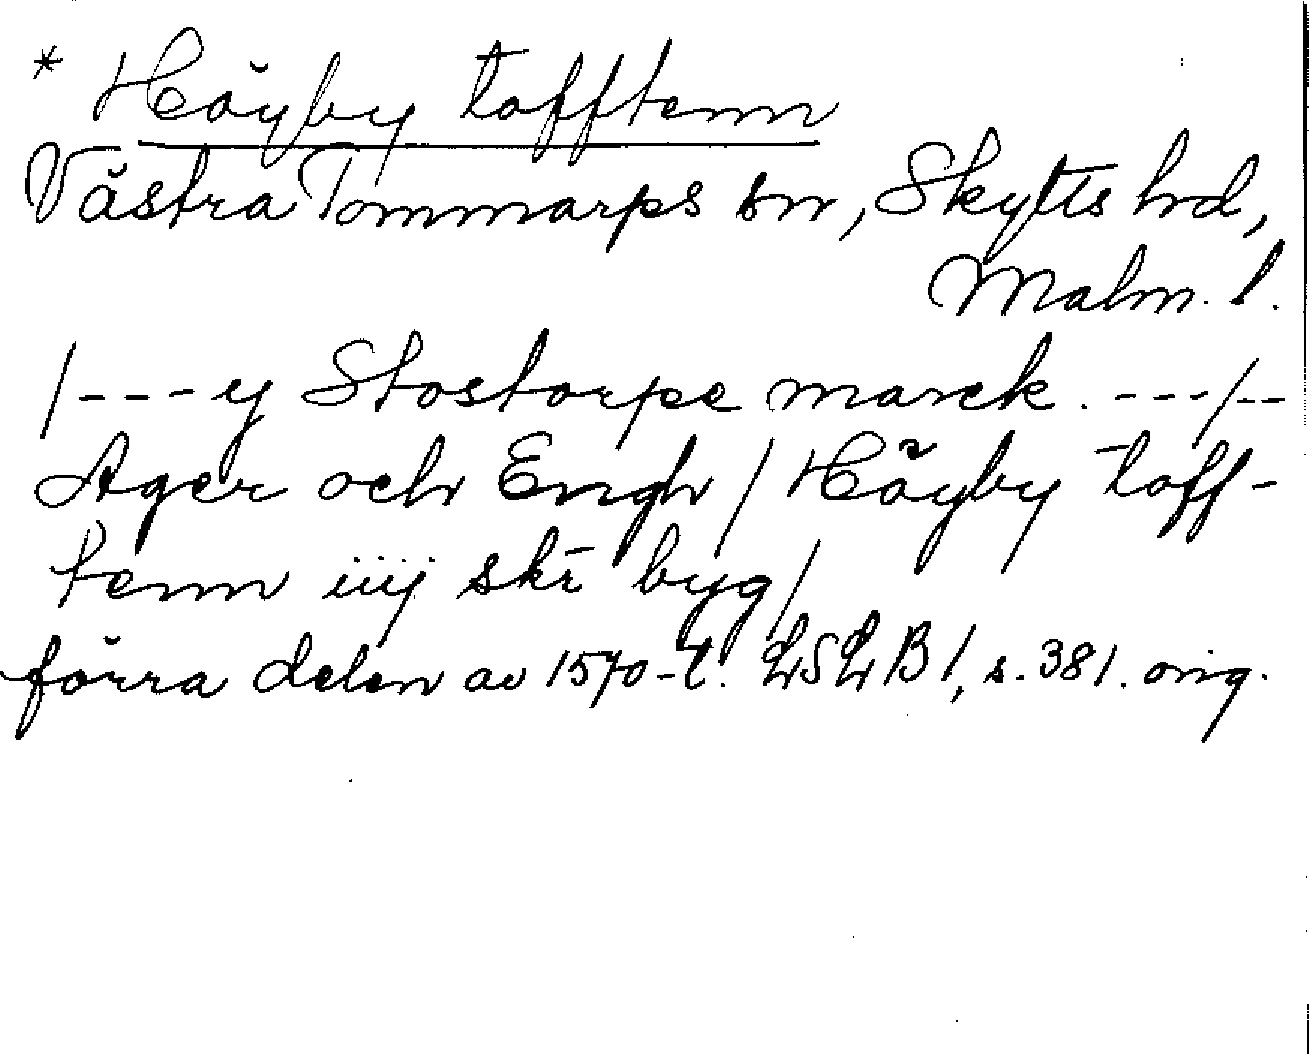 * Höÿby tofftenn
Västra Tommarps sn, Skytts hd,
Malm. l.
/---y Stostorpe marck. ---/--
Ager och Engh / Höÿby toff-
tenn iiij skr̄ byg/
förra delen av 1570-t. LSLB 1, s. 381. orig.